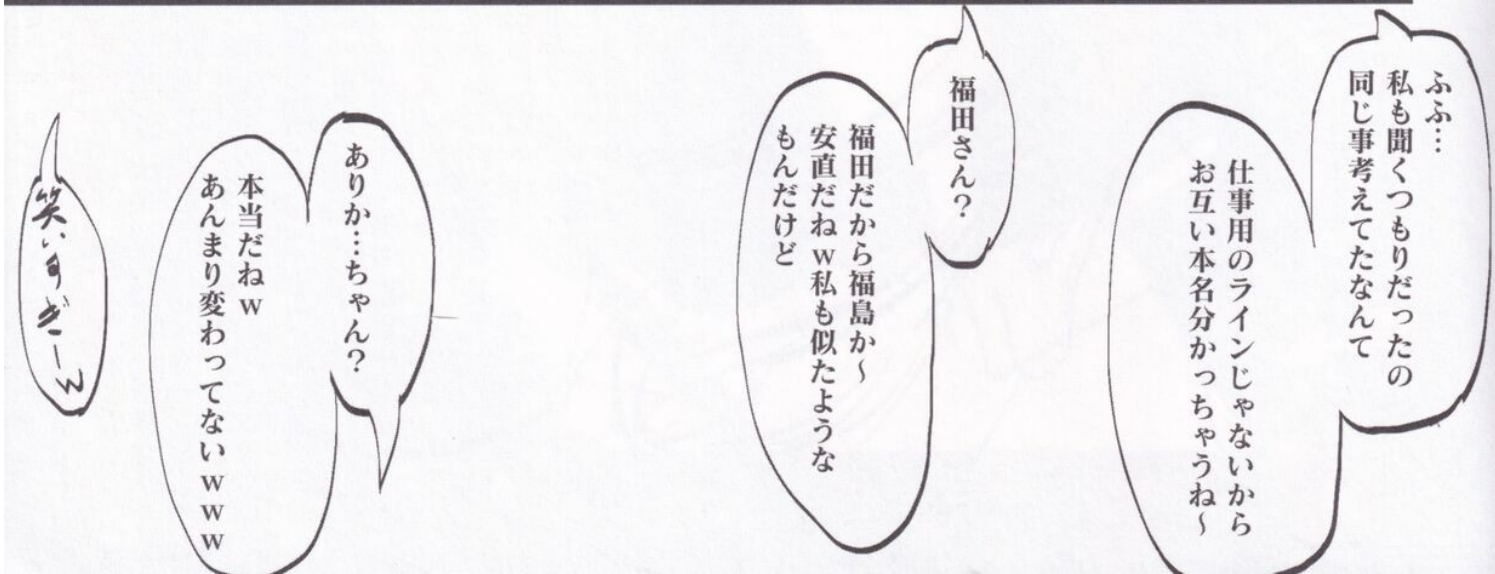 ふふ…
私も聞くつもりだったの
同じ事考えてたなんて
仕事用のラインじゃないから
お互い本名分かっちゃうね～
福田さん？
福田だから福島か～
安直だねw私も似たような
もんだけど
ありか…ちゃん？
本当だねw
あんまり変わってないwww
笑いすぎーw